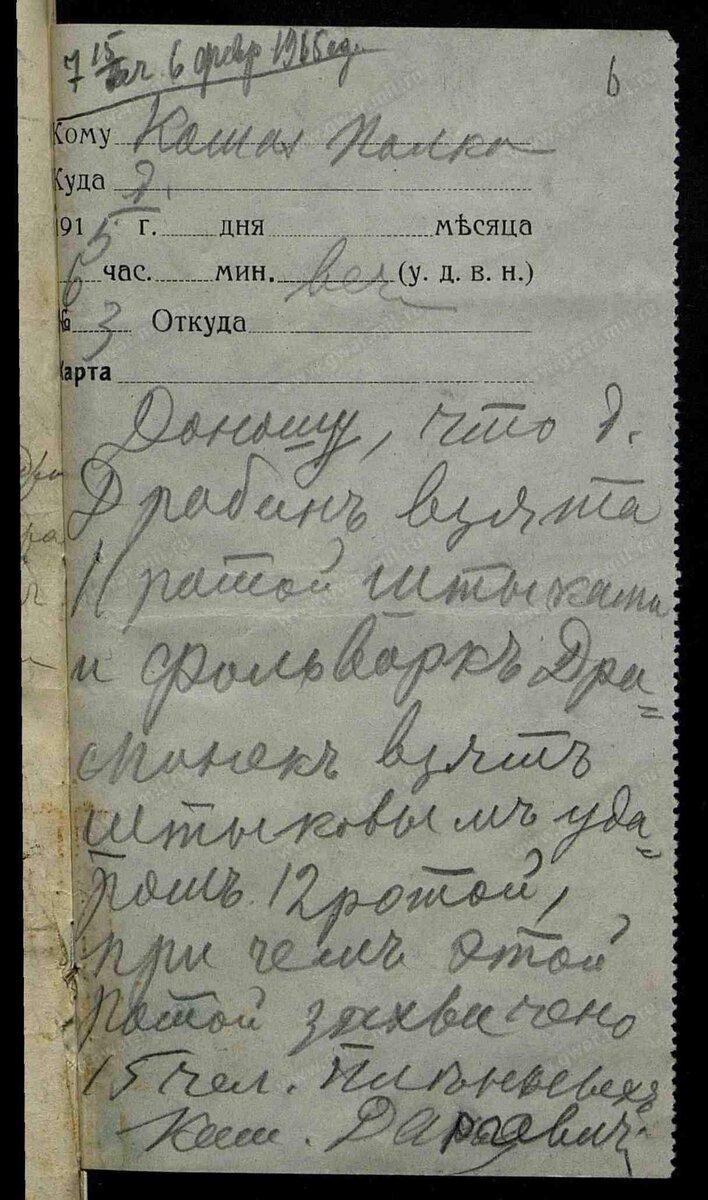 7 15 6 февр 1915 года
6
Кому Команд. Полка
Куда д.
1915 г. дня мѣсяца
6 час. мин. веч (у. д. в. н.)
№ 3 Откуда
Карта
Доношу, что д.
Дробинъ взята
11 ротой штыками
и фольваркъ Дра=
взятъ
штыковымъ уда=
ромъ 12 ротой,
при чемъ этой
ротой захвачено
15 чел. плѣнныхъ
Кап.